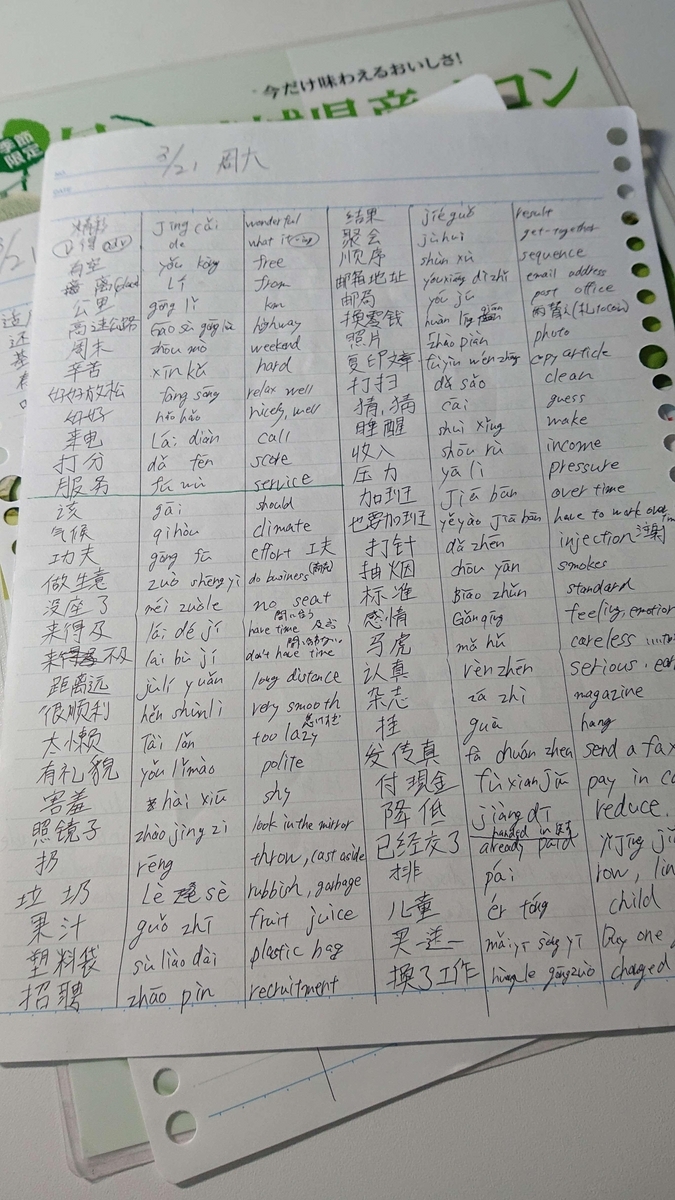 今だけ味わえるおいしさ!
季節
限定
県産メロン
3/21 周六
精彩 Jīng cǎi wonderful
得 de what it
有空 yǒu kòng free
离 Lí from
公里 gōng lǐ km
高速公路 Gāo sù gōng lù highway
周末 zhōu mò weekend
辛苦 xīn kǔ hard
好好放松 fàng sōng relax well
好好 hǎo hǎo nicely, well
来电 Lái diàn call
打分 dǎ fēn score
服务 fú wù service
该 gāi should
气候 qì hòu climate
功夫 gōng fu effort 工夫
做生意 zuò shēng yì do business
没座了 méi zuò le no seat
来得及 lái dé jí have time
来得及不及 lái bù jí don't have time
距离远 jù lí yuǎn long distance
很顺利 hěn shùn lì very smooth
太懒 Tài lǎn too lazy
有礼貌 yǒu lǐ mào polite
害羞 hài xiū shy
照镜子 zhào jìng zi look in the mirror
扔 rēng throw, cast aside
垃圾 Lè sè rubbish, garbage
果汁 guǒ zhī fruit juice
塑料袋 sù liào dài plastic bag
招聘 zhāo pìn recruitment
结果 jié guǒ result
聚会 jù huì get-together
顺序 shùn xù sequence
邮箱地址 yóu xiāng dì zhǐ email address
邮局 yóu jú post office
换零钱 huàn líng qián 両替え(札to coin)
照片 zhào piàn photo
复印文章 fù yìn wén zhāng copy article
打扫 dǎ sǎo clean
猜, 猜 cāi guess
睡醒 shuì xǐng wake
收入 shōu rù income
压力 yā lì pressure
加班 Jiā bān over time
也要加班 yě yào Jiā bān have to work over time
打针 dǎ zhēn injection 注射
抽烟 chōu yān smokes
标准 Biāo zhǔn standard
感情 Gǎn qíng feeling, emotion
马虎 mǎ hǔ careless
认真 rèn zhēn serious, ear
杂志 zá zhì magazine
挂 guà hang
发传真 fā chuán zhēn send a fax
付現金 fù xiàn jīn pay in ca
降低 jiàng dī reduce.
已经交了 handed in already paid yǐ Jīng ji
排 pái row, lin
儿童 ér tóng child
买一送一 mǎi yī sòng yī Buy one
換了工作 huàn le gōng zuò changed